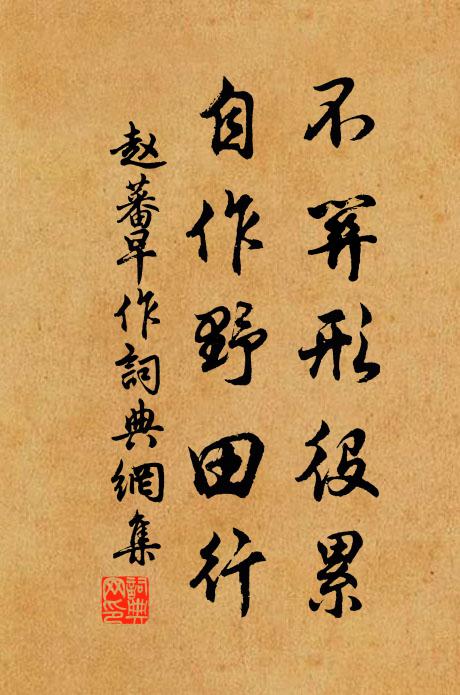 不關形役累
自作野田行
赵蕃早作詞典網集
詞典
网印